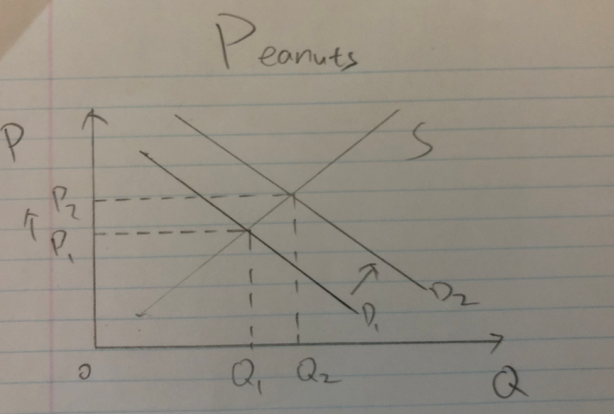 Peanuts
P
S
P2
P1
D1
D2
0
Q1
Q2
Q